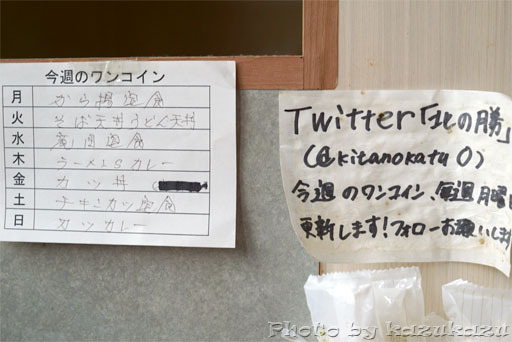 今週のワンコイン
月 から揚定食
火 そば天丼うどん天丼
水 肉定食
木 ラーメンSカレー
金 カツ丼
土 チキンカツ定食
日 カツカレー
Twitter「北の勝」
(@kitanokatu0)
今週のワンコイン、毎週月曜日
更新します!フォローお願いします
Photo by kazukazu